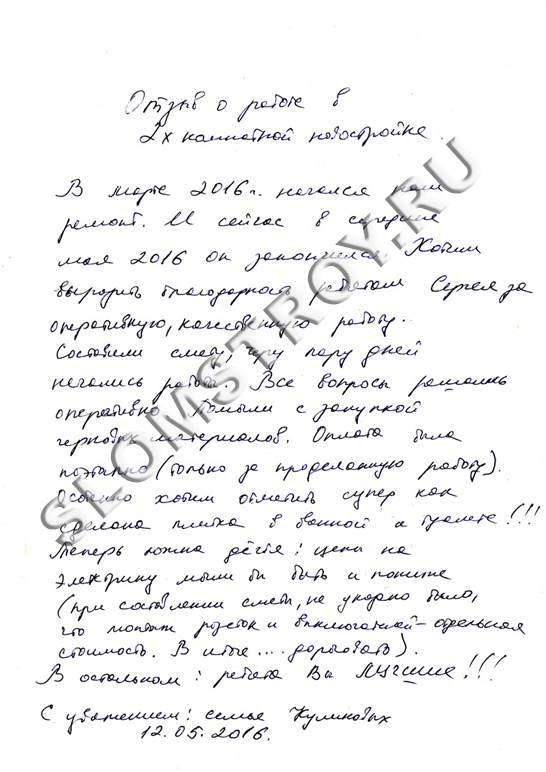 Отзыв о работе в
2х комнатной новостройке.
В марте 2016г. начался наш
ремонт. И сейчас в середине
мая 2016 он закончился. Хотим
выразить благодарность ребятам Сергея за
оперативную, качественную работу.
Составили смету, чрз пару дней
начались работы. Все вопросы решались
оперативно. Помогли с закупкой
черновых материалов. Оплата была
поэтапно (только за проделанную работу).
Особенно хотим отметить супер как
сделана плитка в ванной и туалете!!!
Теперь ложка дёгтя: цены на
электрику могли бы быть и пониже
(при составлении сметы, не указано было,
что монтаж розеток и выключателей - отдельная
стоимость. В итоге ... дороговато).
В остальном: ребята Вы Лучшие!!!
С уважением: семья Куликовых
12.05.2016.
SLOMSTROY.RU